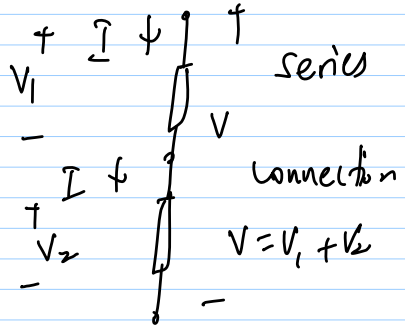 + I ↓ +
V₁
series
V
−
I ↓
connection
+
V₂
V = V₁ + V₂
−
−